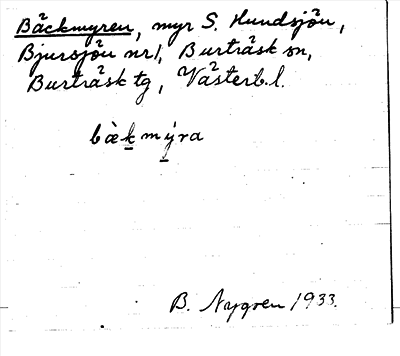 Bäckmyren, myr S. Hundsjön,
Bjursjön nr 1, Burträsk sn,
Burträsk tg, Västerb. l.
bæ̀k mýra
B. Nygren 1933.